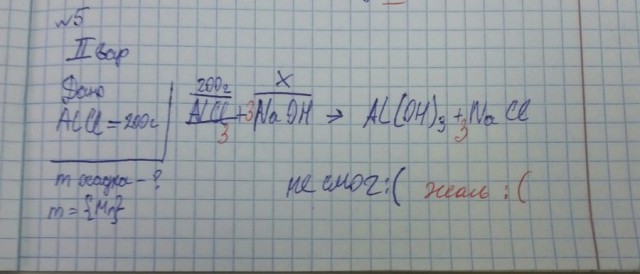 №5
II вар
Дано
AlCl = 200г
m осадка - ?
m = {Mn}
200г X
AlCl3 + 3NaOH → Al(OH)3 + 3NaCl
не смог :( жаль :(